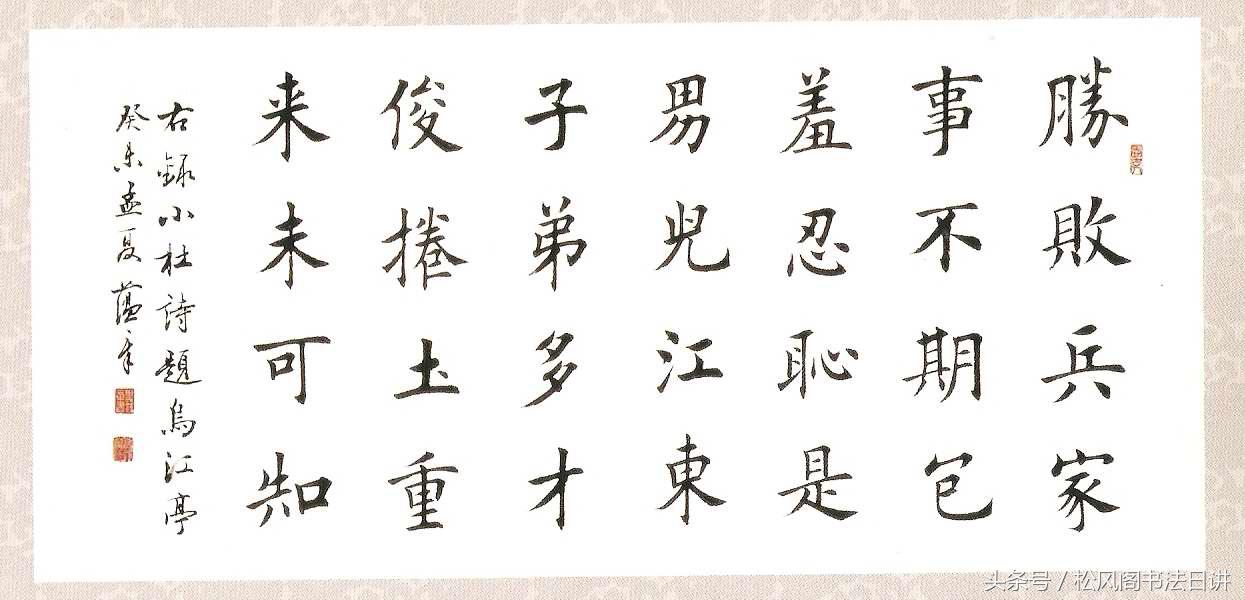 勝敗兵家
事不期包
羞忍恥是
男児江東
子弟多才
俊捲土重
来未可知
右録小杜詩題烏江亭
癸未孟夏蘊章
头条号 / 松风阁书法日讲